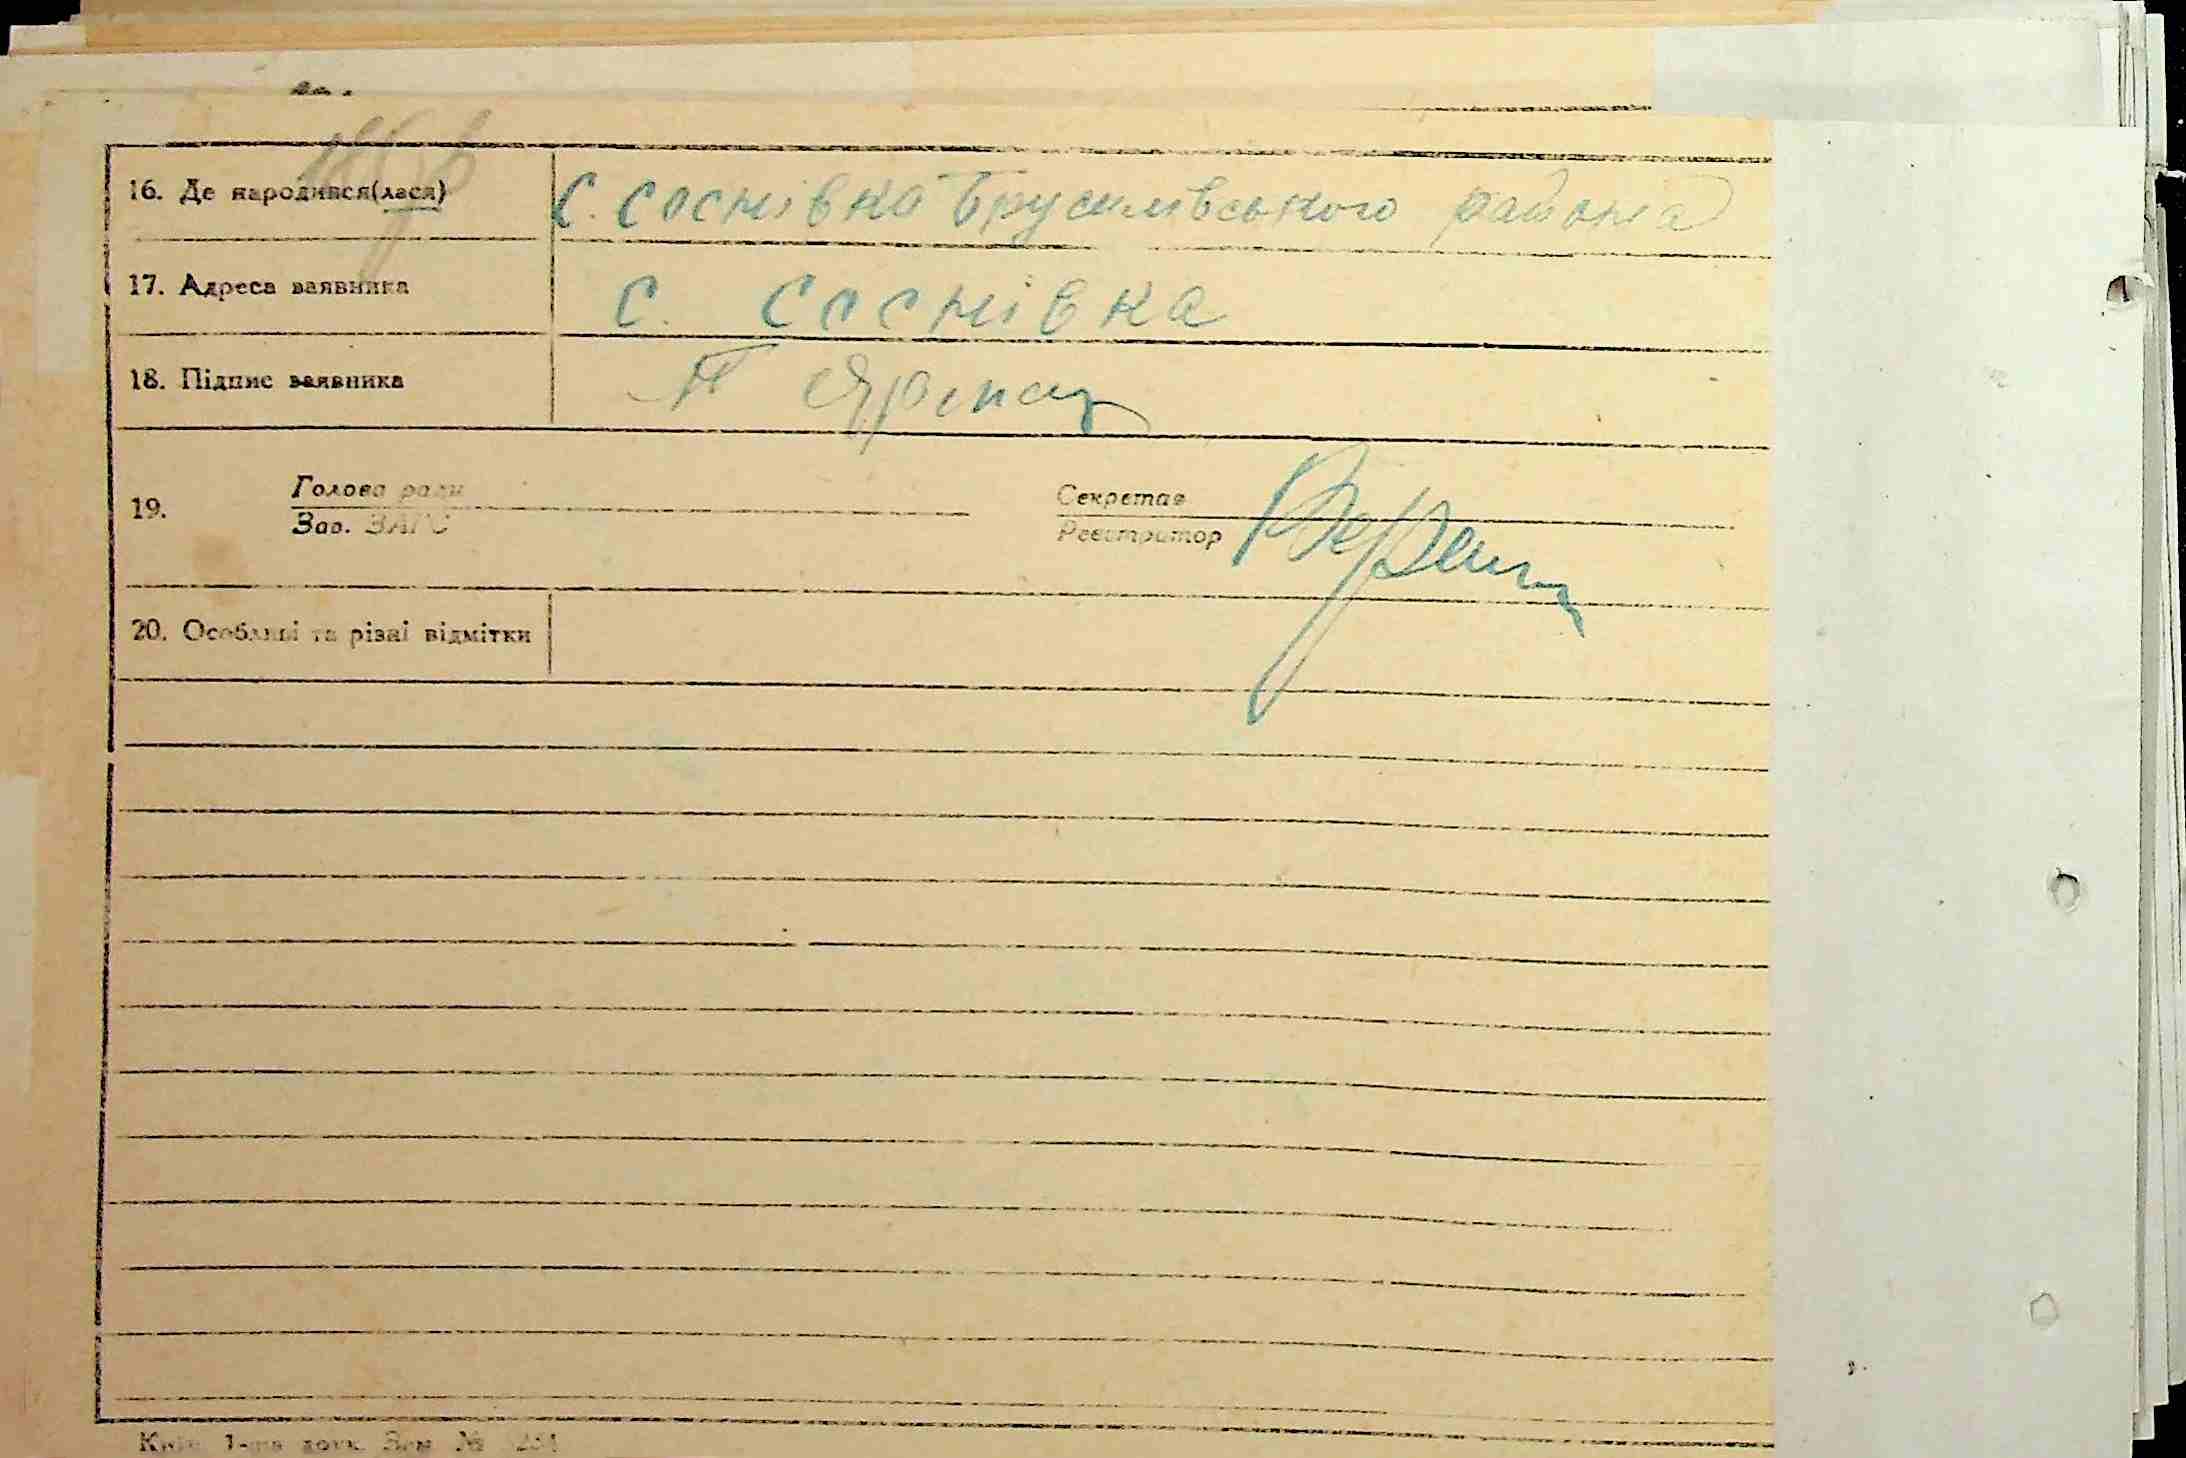 16. Де народився(лася) с. Соснівка Брусилівського района
17. Адреса заявника с. Соснівка
18. Підпис заявника П
19. Голова ради Секретар
Зав. ЗАГС Реєстратор
20. Особливі та різні відмітки
Київ 1-ша друк. Зам. №